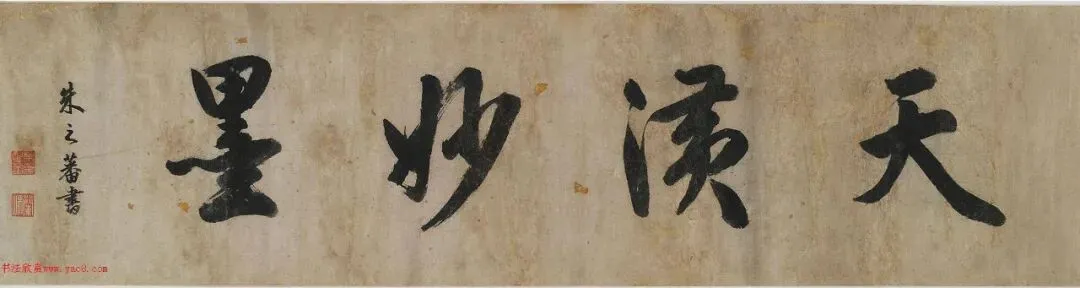 天潢妙墨
朱之蕃書
书法欣赏www.yac8.com